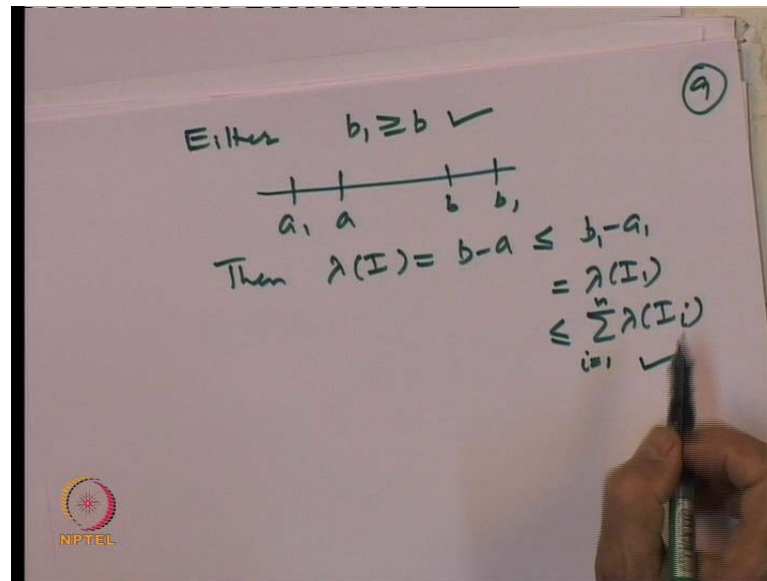 9
Either b₁ ≥ b ✓
a₁ a b b₁
Then λ(I) = b-a ≤ b₁-a₁
= λ(I₁)
≤ ∑ⁿᵢ₌₁ λ(Iᵢ) ✓
NPTEL